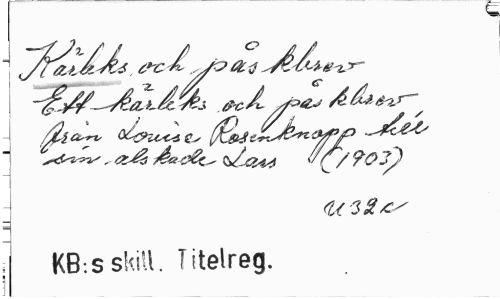 Kärleks och påskbrev
Ett kärleks och påskbrev
från Louise Rosenknopp till
sin älskade Lars (1903)
U 32 c
KB:s skill. Titelreg.